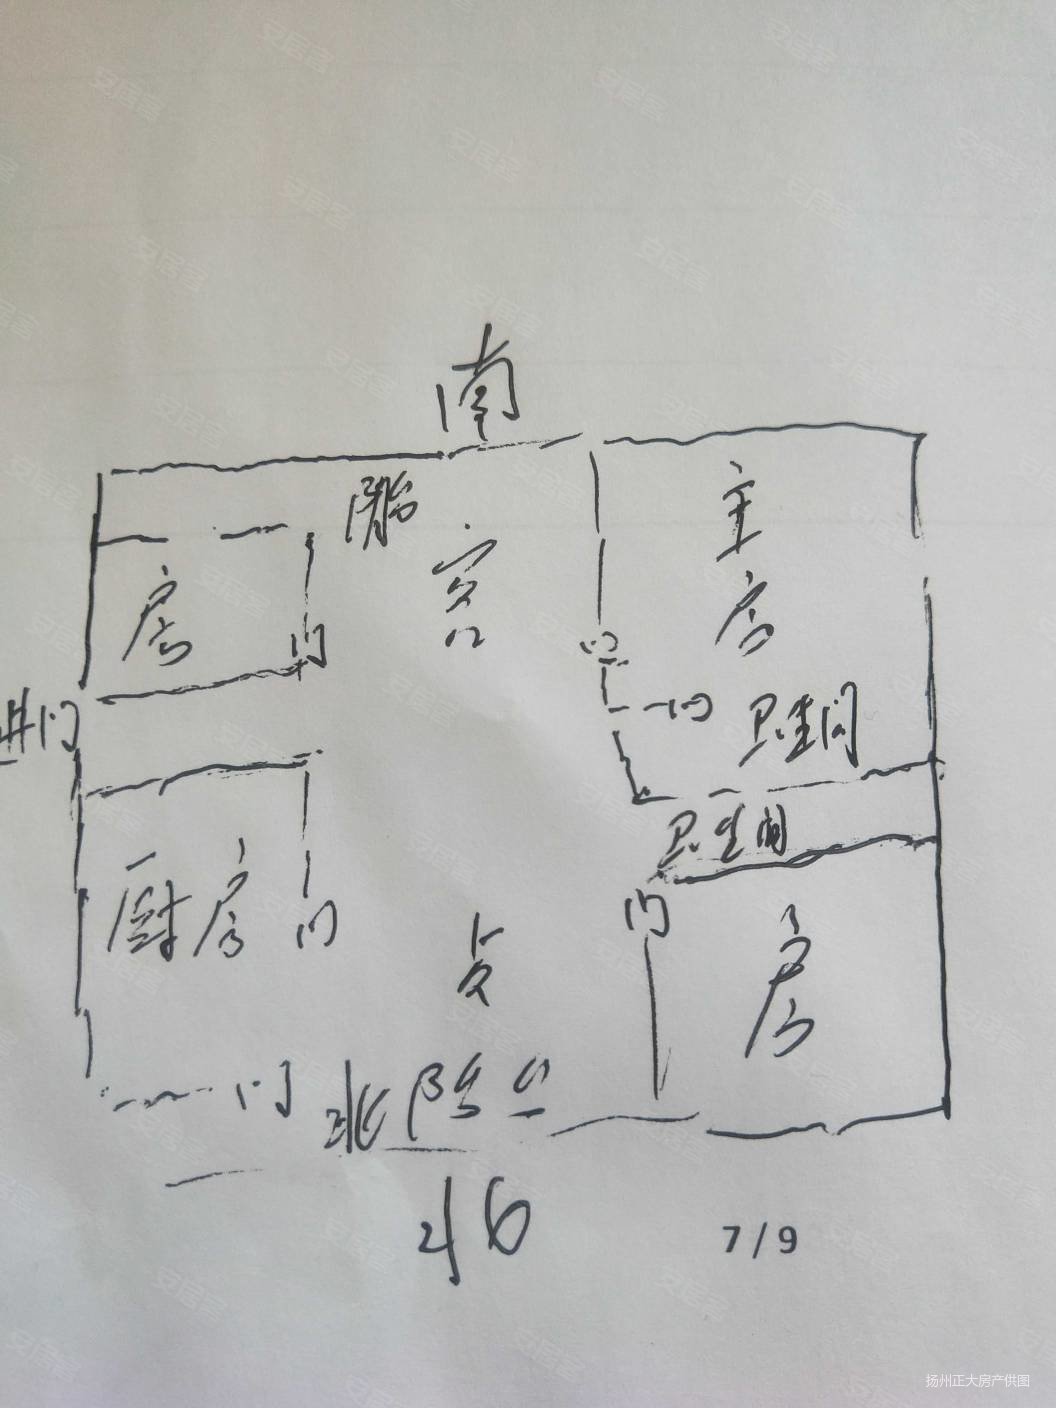 南
阳台
主
客
房
房
门
门
进门
门
卫生间
卫生间
厨房
门
门
房
门
北阳台
北
7/9
扬州正大房产供图
安居客